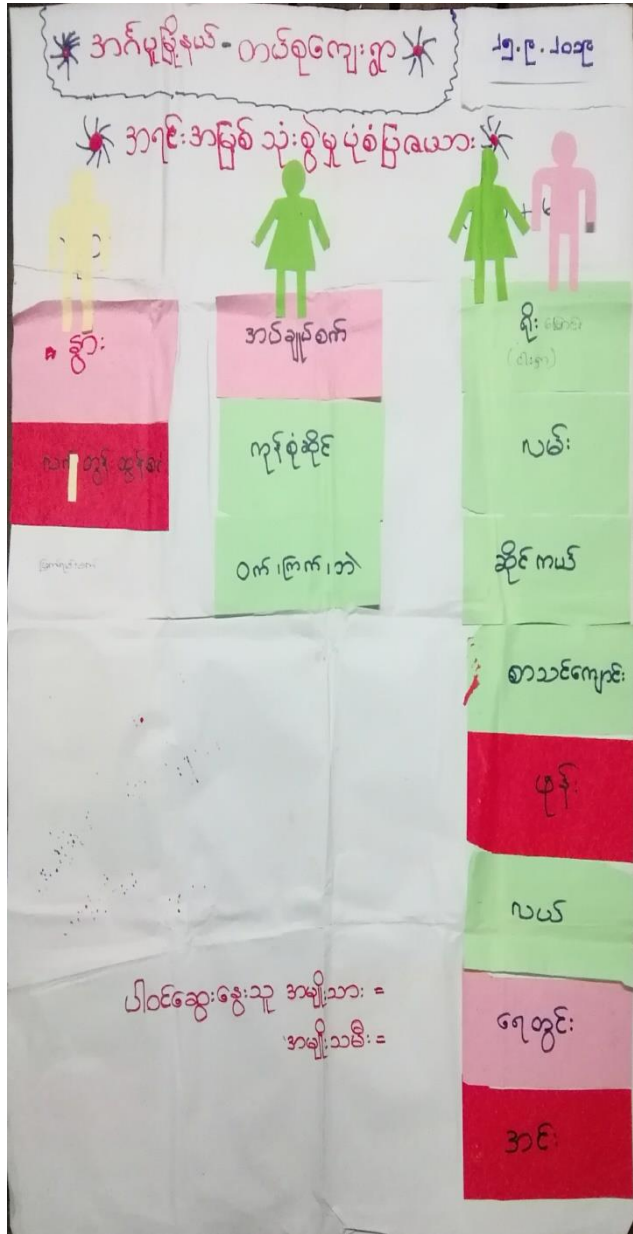 အင်္ဂပူမြို့နယ် - တပ်စုကျေးရွာ
၂၅.၉.၂၀၁၉
အရင်းအမြစ် သုံးစွဲမှု ပုံစံပြဇယား
နွား
အပ်ချုပ်စက်
ကုန်စုံဆိုင်
ဝက်၊ကြက်၊ဘဲ
ရိုး
လမ်း
ဆိုင်ကယ်
စာသင်ကျောင်း
ဖုန်း
လယ်
ရေတွင်း
အင်း
ပါဝင်ဆွေးနွေးသူ အမျိုးသား =
အမျိုးသမီး =